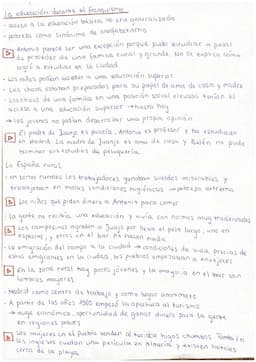 La educación durante el franquismo
- acceso a la educación básica no era generalizada
- pobreza como sinónimo de analfabetismo
Antonio parece ser una excepción porque pudo estudiar a pesar
de proceder de una familia rural y grande. No se explica cómo
llegó a estudiar en la ciudad
- Los niños podían acceder a una educación superior
- Las chicas estaban preparadas para su papel de ama de casa y madre
- Las chicas de una familia en una posición social elevada tenían el
acceso a una educación superior → hasta hoy
→ los jóvenes no podían desarrollar una propia opinión
El padre de Juanjo es policía, Antonio es profesor y ha estudiado
en Madrid. La madre de Juanjo es ama de casa y Belén no pudo
terminar sus estudios de peluquería.
La España rural
- en zonas rurales los trabajadores ganaban sueldos miserables y
trabajaban en malas condiciones higiénicas → pobreza extrema
Los niños que piden dinero a Antonio para comer
- la gente no recibía una educación y vivía con normas muy tradicionales
Los campesinos agreden a Juanjo por llevar el pelo largo, uno en
especial, y otros en el bar no hacen nada
- La emigración del campo a la ciudad → condiciones de vida precarias de
estos emigrantes en la ciudad, los pueblos empezaban a envejecer
En la zona rural hay pocos jóvenes y la mayoría en el bar son
hombres mayores
- Madrid como centro de trabajo y como lugar anonimato
- A partir de los años 1960 empezó la apertura al turismo
→ auge económico, oportunidad de ganar dinero para la gente
en regiones pobres
Las mujeres en el pueblo venden al turista higos chumbos. También
los ingleses ruedan una película en Almería y existen hoteles
cerca de la playa